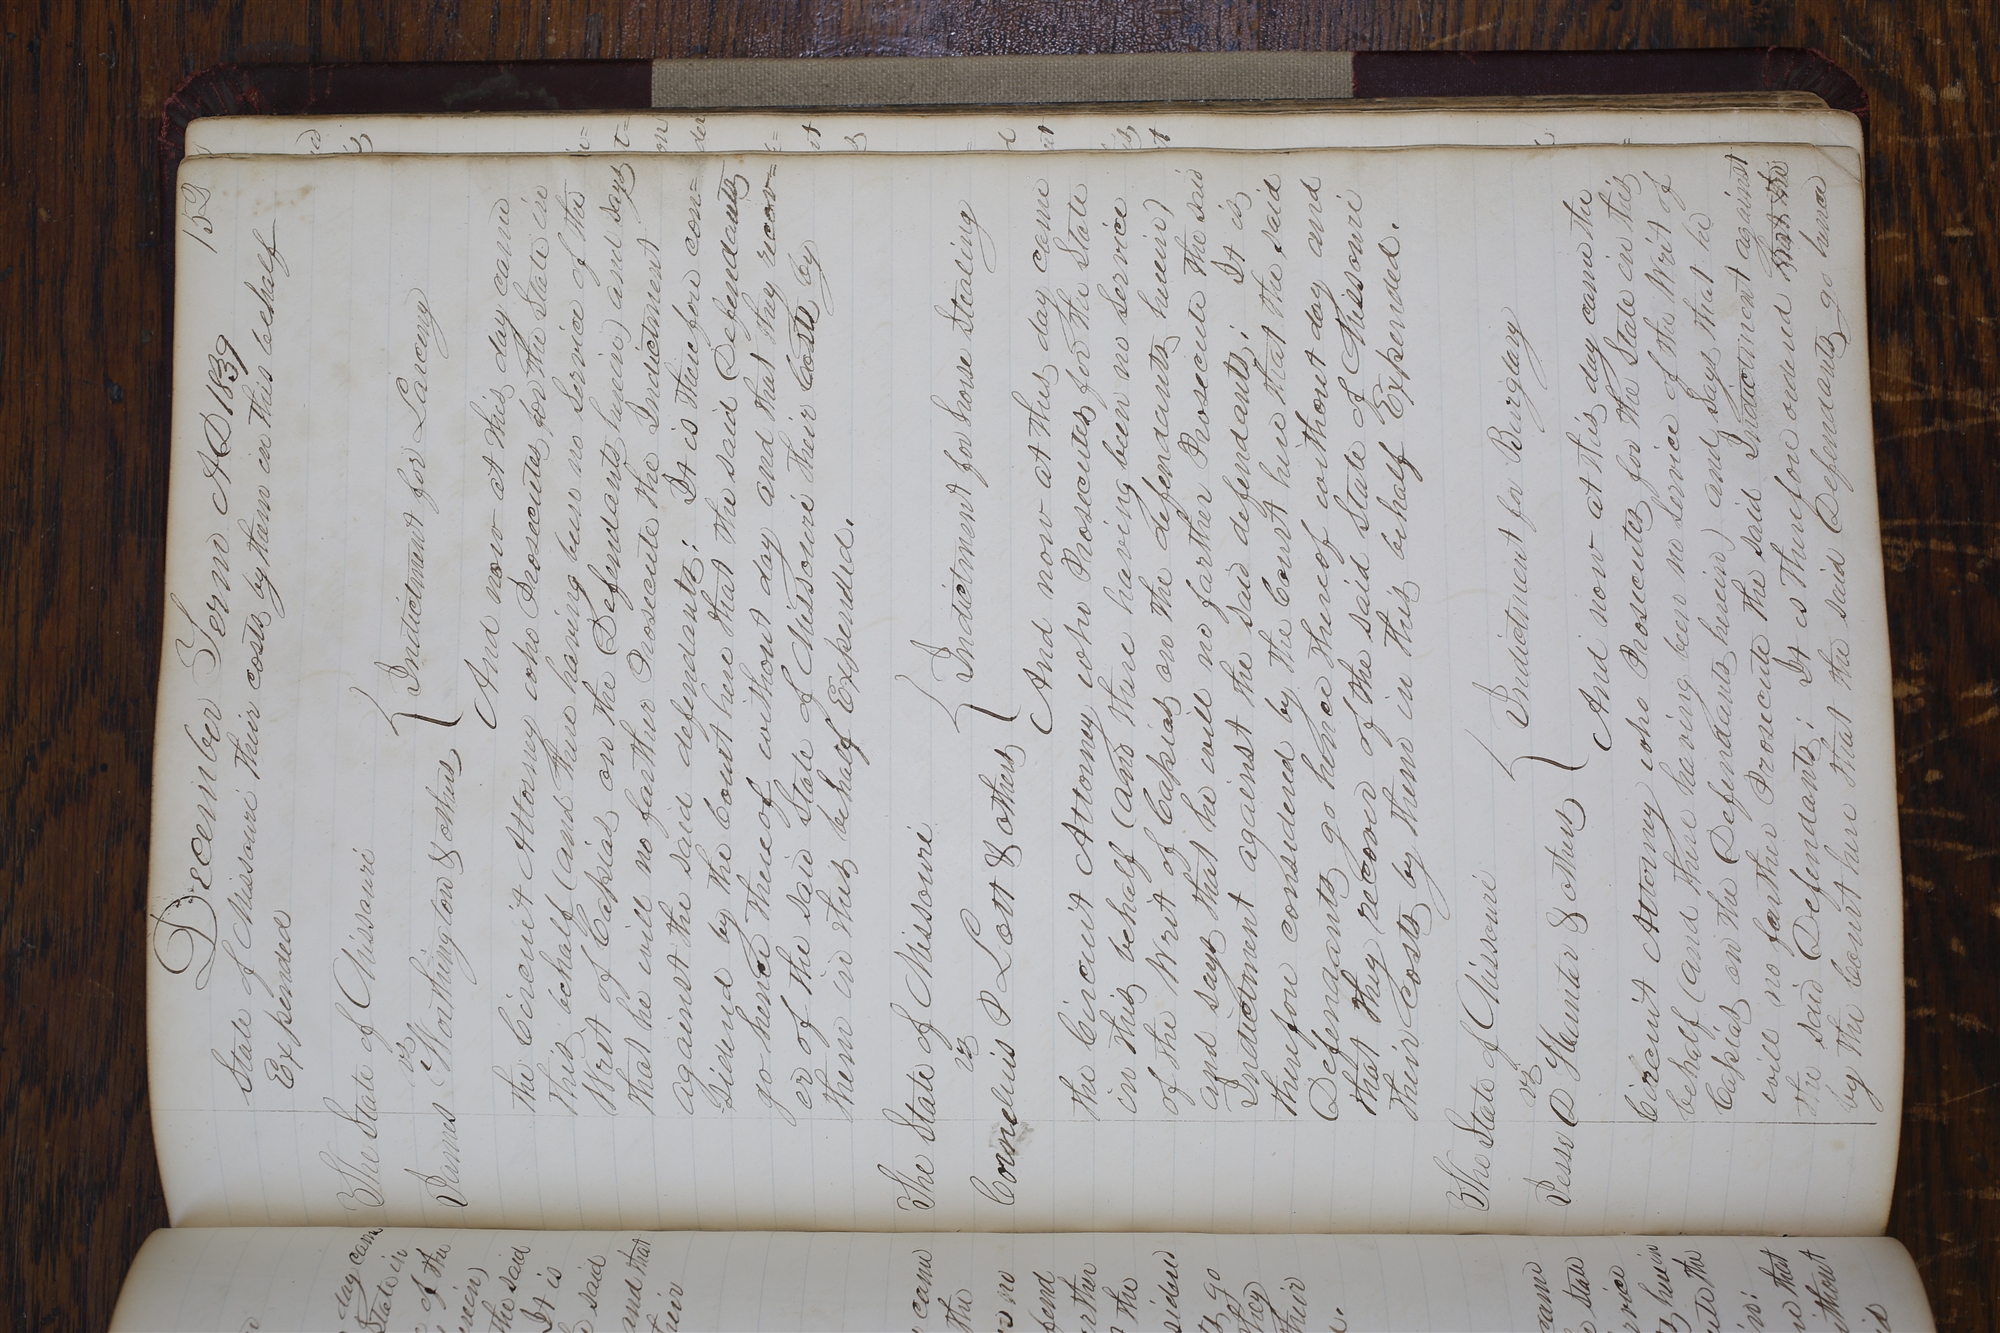 December Term A D 1839
152
State of Missouri their costs by them in this behalf
Expended
The State of Missouri
vs
James Worthington & others
Indictment for Larceny
And now at this day came
the Circuit Attorney who Prosecutes for the State in
this behalf (and there having been no Service of the
Writ of Capias on the Defendants herein) and says
that he will no farther Prosecute the Indictment
against the said defendants; It is therefore con=
sidered by the Court here that the said Defendants
go hence thereof without day and that they recov=
er of the said State of Missouri their Costs by
them in this behalf Expended.
The State of Missouri
vs
Cornelius P Lott & others
Indictment for horse Stealing
And now at this day came
the Circuit Attorney who Prosecutes for the State
in this behalf (and there having been no Service
of the Writ of Capias on the defendants herein)
and says that he will no farther Prosecute the said
Indictment against the said defendants; It is
therefore considered by the Court here that the said
Defendants go hence thereof without day and
that they recover of the said State of Missouri
their Costs by them in this behalf Expended.
The State of Missouri
vs
Jesse D Hunter & others
Indictment for Burglary
And now at this day came the
Circuit Attorney who Prosecutes for the State in this
behalf (and there having been no Service of the Writ of
Capias on the Defendants herein) and says that he
will no farther Prosecute the said Indictment against
the said Defendants; It is Therefore ordered that the
by the Court here that the said Defendants go hence
day came
State in
e of the
the said
It is
said
and that
their
came
the
no
the
go
their
came
State
herein
the
then
is